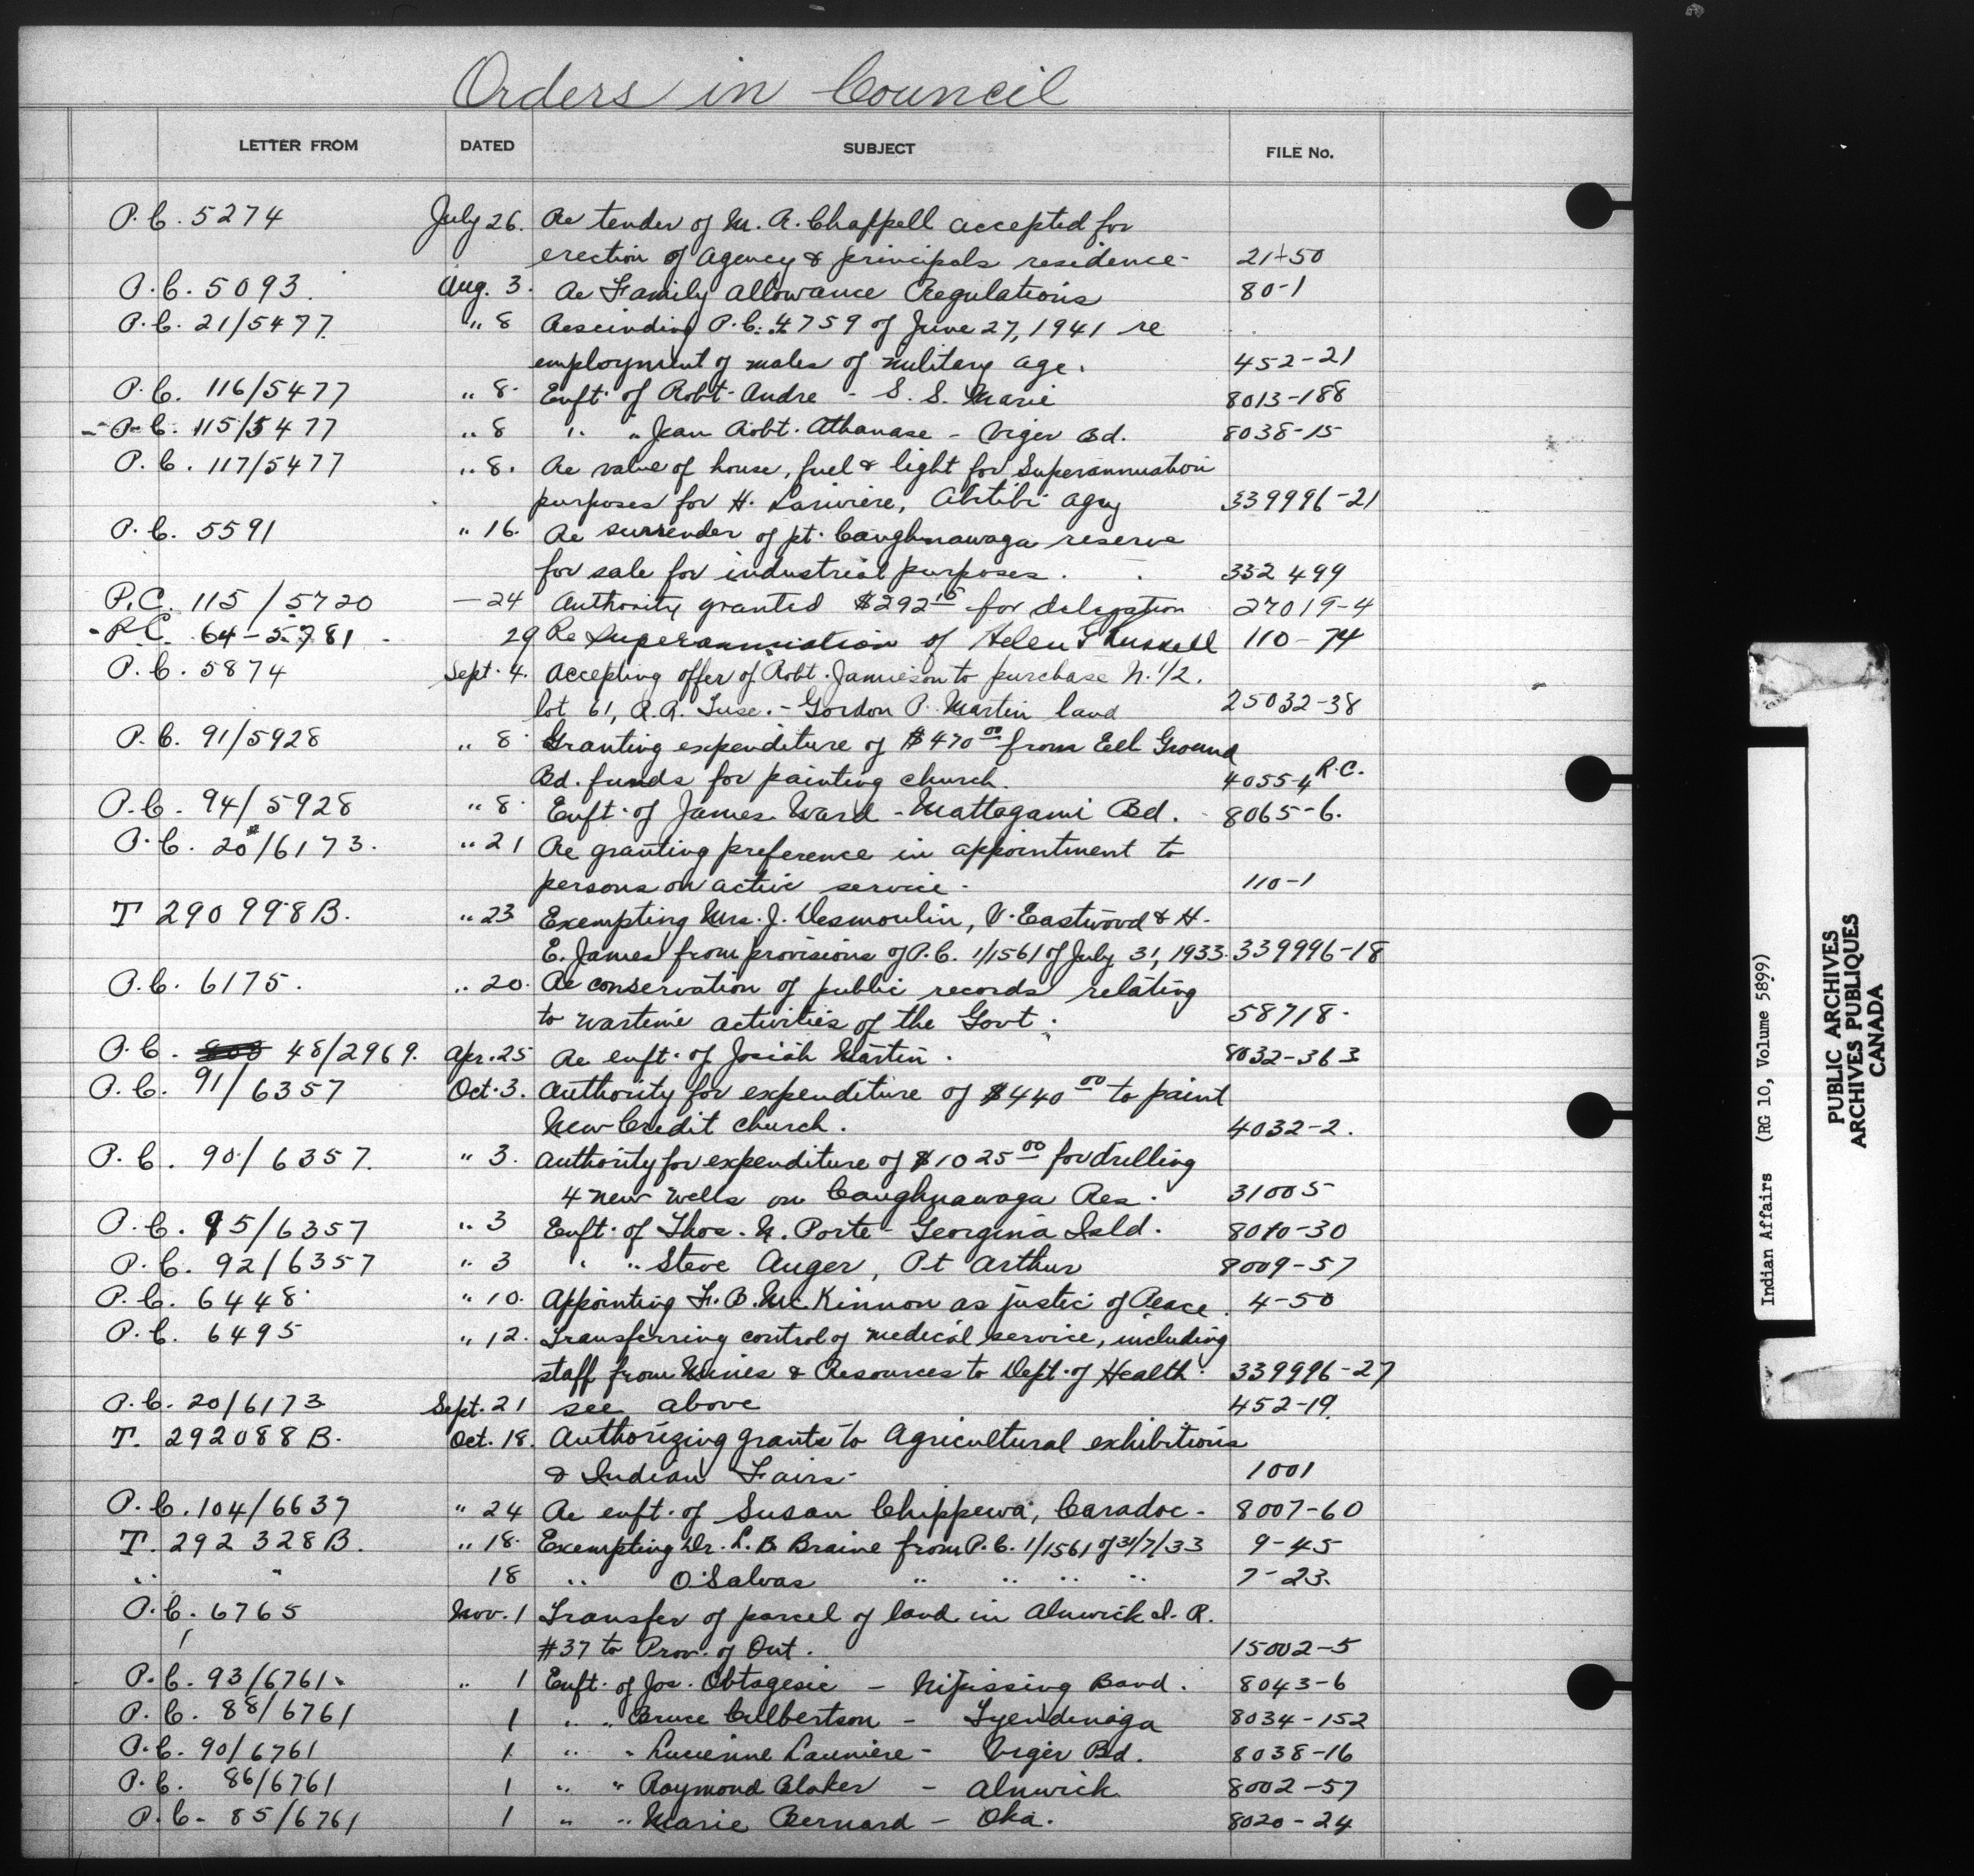 Orders in Council
LETTER FROM DATED SUBJECT FILE No.
P.C. 5274 July 26. Re tender of M. A. Chappell accepted for
erection of Agency & principals residence - 21-50
P.C. 5093. Aug. 3. Re Family Allowance Regulations 80-1
P.C. 21/5477. " 8 Rescinding P.C. 4759 of June 27, 1941 re
employment of males of military age. 452-21
P.C. 116/5477 " 8. Enft. of Robt. Andre - S. S. Marie 8013-188
P.C. 115/5477 " 8 " " Jean Robt. Athanase - Viger Bd. 8038-15
P.C. 117/5477 " 8. Re value of house, fuel & light for Superannuation
purposes for H. Lariviere, Abitibi Agcy 339996-21
P.C. 5591 " 16. Re surrender of pt. Caughnawaga reserve
for sale for industrial purposes. 332 499
P.C. 115/5720 - 24 Authority granted $292 15 for delegation 27019-4
P.C. 64-5781 - 29 Re Superannuation of Helen 110-74
P.C. 5874 Sept. 4. Accepting offer of Robt. Jamieson to purchase N. 1/2.
lot 61, R.R. Tusc. - Gordon P. Martin land 25032-38
P.C. 91/5928 " 8 Granting expenditure of $470 00 from Eel Ground
Bd. funds for painting church. 4055-4 R.C.
P.C. 94/5928 " 8. Enft. of James Ward - Mattagami Bd. - 8065-6.
P.C. 20*/6173. " 21 Re granting preference in appointment to
persons on active service - 110-1
T 290998B. " 23 Exempting Mrs. J. Desmoulin, V. Eastwood & H.
E. James from provisions of P.C. 1/1561 of July 31, 1933. 339996-18
P.C. 6175. " 20. Re conservation of public records relating
to wartime activities of the Govt. 58718.
P.C. 48/2969. Apr. 25 Re enft. of Josiah Martin. 8032-363
P.C. 91/6357 Oct. 3. Authority for expenditure of $440 00 to paint
New Credit church. 4032-2.
P.C. 90/6357. " 3. Authority for expenditure of $1025 00 for drilling
4 new wells on Caughnawaga Res. 31005
P.C. 95/6357 " 3 Enft. of Thos. N. Porte - Georgina Isld. 8010-30
P.C. 92/6357 " 3 " " Steve Auger, Pt Arthur 8009-57
P.C. 6448 " 10. Appointing F. B. McKinnon as justice of Peace. 4-50
P.C. 6495 " 12. Transferring control of medical service, including
staff from Mines & Resources to Dept. of Health. 339996-27
P.C. 20/6173 Sept. 21 see above 452-19.
T. 292088B. Oct. 18. Authorizing grants to Agricultural exhibitions
& Indian Fairs - 1001
P.C. 104/6637 " 24 Re enft. of Susan Chippewa, Caradoc - 8007-60
T. 292 328B. " 18. Exempting Dr. L. B. Braine from P.C. 1/1561 of 31/7/33 9-45
" " 18 " O. Salvas " " " " 7-23.
P.C. 6765 Nov. 1 Transfer of parcel of land in Alnwick I. R.
#37 to Prov. of Ont. 15002-5
P.C. 93/6761 " 1 Enft. of Jos. Obtagesic - Nipissing Band. 8043-6
P.C. 88/6761 1 " " Bruce Culbertson - Tyendinaga 8034-152
P.C. 90/6761 1 " " Lucienne Launiere - Viger Bd. 8038-16
P.C. 86/6761 1 " " Raymond Blaker - Alnwick. 8002-57
P.C. 85/6761 1 " " Marie Bernard - Oka. 8020-24
Indian Affairs (RG 10, Volume 5899)
PUBLIC ARCHIVES
ARCHIVES PUBLIQUES
CANADA